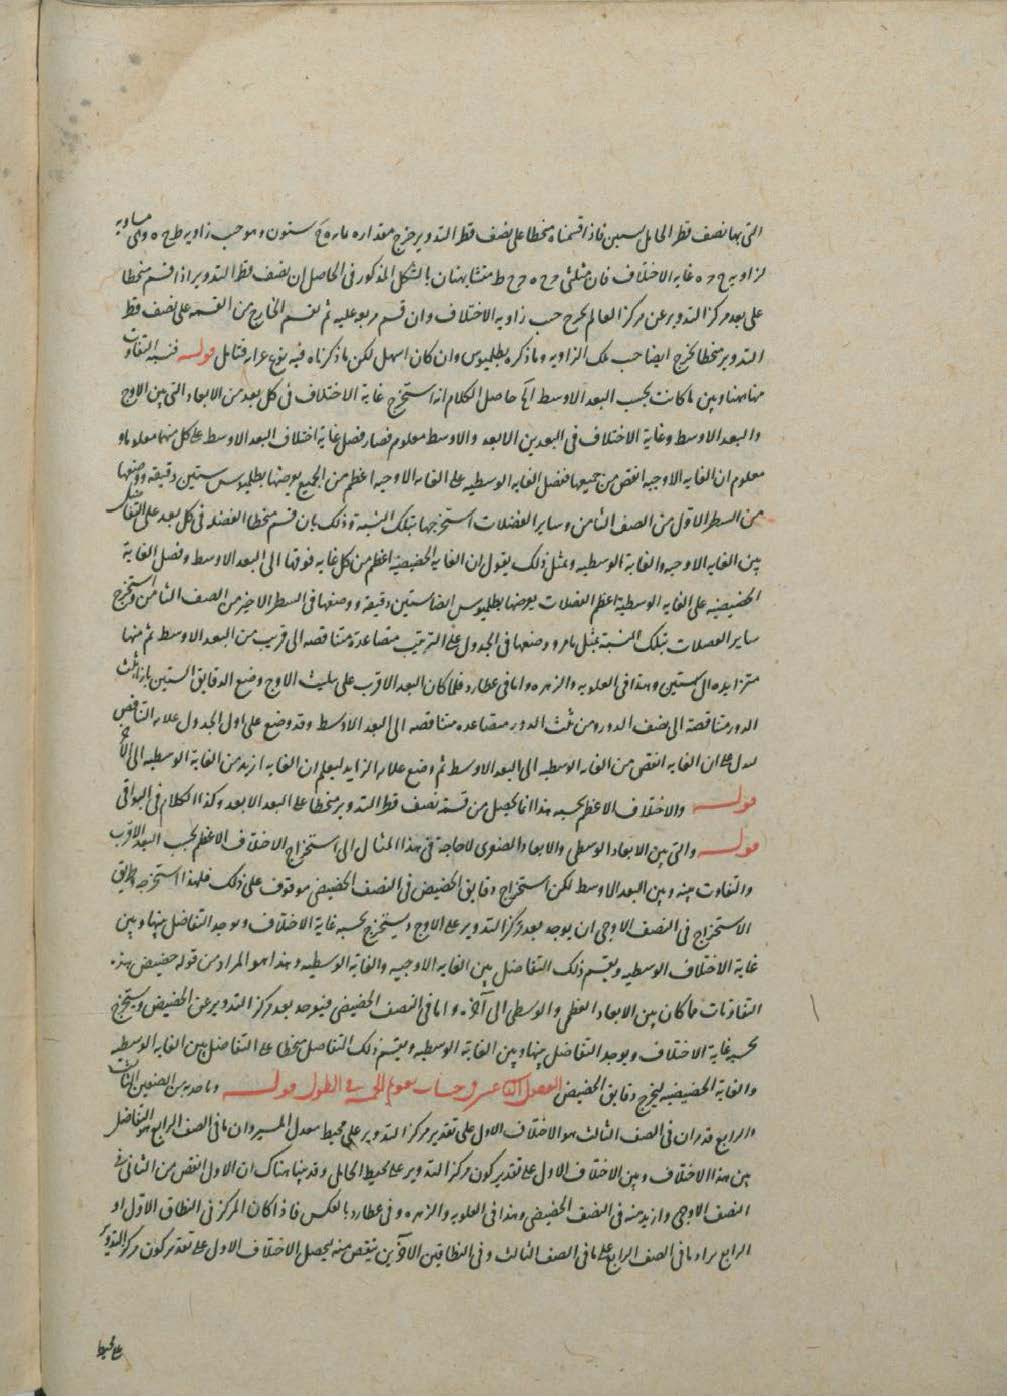 التى بها نصف قطر الحامل ستين فاذا قسمناه منحطا على نصف قطر التدوير خرج مقداره ستون وهو جيب زاويه مساويه
لزاويه غايه الاختلاف فان مثلثى متشابهتان بالشكل المذكور فى الحاصل ان نصف قطر التدوير اذا قسم منحطا
على بعد مركز التدوير عن مركز العالم يخرج جيب زاويه الاختلاف وان قسم مربوعليه ثم يقسم الخارج من القسمه على نصف قطر
التدوير منحطا يخرج ايضا جيب تلك الزاويه وما ذكره بطليموس وان كان اسهل لكن ما ذكرناه فيه فتامل قوله فنسبه التفاوت
منها هنا وبين ما كانت بحسب البعد الاوسط حاصل الكلام انه استخرج غاية الاختلاف فى كل بعد من الابعاد التى بين الاوج
والبعد الاوسط وغاية الاختلاف فى البعدين الابعد والاوسط معلوم فصار فضل غاية اختلاف البعد الاوسط على كل منها معلوما و
معلوم ان الغايه الاوجيه انقص من جميعها ففضل الغايه الوسطيه على الغايه الاوجيه اعظم من الجميع بطليموس ستين دقيقه ووضعها
من السطر الاول من الصف الثامن وساير الفضلات استخرجها بتلك النسبة وذلك بان قسم منحطا الفضله فى كل بعد على التفاضل
بين الغايه الاوجيه والغاية الوسطيه وبمثل ذلك يقول ان الغايه الحضيضيه اعظم من كل غايه فوقها الى البعد الاوسط وفضل الغاية
الحضيضيه على الغايه الوسطية اعظم الفضلات بطليموس ايضا ستين دقيقة ووضعها فى السطر الاخير من الصف الثامن واستخرج
ساير الفضلات بتلك النسبة بمثل ما مر ووضعها فى الجدول على الترتيب متصاعدة متناقصه الى قريب من البعد الاوسط ثم منها
متزايده الى ستين وهذا فى العلويه والزهره واما فى عطارد فلما كان البعد الاقرب على تثليث الاوج وضع الدقايق الستين بازاء ثلث
الدور متناقصة الى نصف الدور ومن ثلث الدور متصاعده متناقصه الى البعد الاوسط وقد وضع على اول الجدول علامه الناقص
ليدل على ان الغايه انقص من الغايه الوسطيه الى البعد الاوسط ثم وضع علامه الزايد ليعلم ان الغايه ازيد من الغاية الوسطيه الى الآخر
قوله والاختلاف الاعظم بحسبه هذا انما يحصل من قسمة نصف قطر التدوير منحطا على البعد الابعد وكذا الكلام فى البواقى
قوله والتى بين الابعاد الوسطى والابعاد الصغرى لا حاجة فى هذا المثال الى استخراج الاختلاف الاعظم بحسب البعد الاقرب
والتفاوت بينه وبين البعد الاوسط لكن استخراج دقايق الحضيض فى النصف الحضيضى موقوف على ذلك فلهذا استخرجه وطريق
الاستخراج فى النصف الاوجى ان يوجد بعد مركز التدوير على الاوج ويستخرج بحسبه غاية الاختلاف ويوجد التفاضل بينها وبين
غاية الاختلاف الوسطيه ويقسم ذلك التفاضل بين الغايه الاوجيه والغاية الوسطيه وهذا هو المراد من قوله حضيض هذه
التفاوتات ما كان بين الابعاد العظمى والوسطى الى آخره واما فى النصف الحضيضى فيوجد بعد مركز التدوير عن الحضيض ويستخرج
بحسبه غاية الاختلاف ويوجد التفاضل بينها وبين الغاية الوسطيه ويقسم ذلك التفاضل منحطا على التفاضل بين الغايه الوسطيه
والغاية الحضيضيه ليخرج دقايق الحضيض الفصل الثانى عشر فى حساب تقويم المتحيره فى الطول قوله وناخذ من الصفين الثالث
والرابع قد مر ان فى الصف الثالث هو الاختلاف الاول على تقدير مركز التدوير على محيط معدل المسير وان ما فى الصف الرابع هو التفاضل
بين هذا الاختلاف وبين الاختلاف الاول على تقدير كون مركز التدوير على محيط الحامل وقد بينا هناك ان الاول انقص من الثانى فى
النصف الاوجى وازيد منه فى النصف الحضيضى وهذا فى العلويه والزهره وفى عطارد بالعكس فاذا كان المركز فى النطاق الاول او
الرابع يزاد ما فى الصف الرابع على ما فى الصف الثالث وفى النطاقين الآخرين ينقص منه ليحصل الاختلاف الاول على تقدير كون مركز التدوير
على محيط